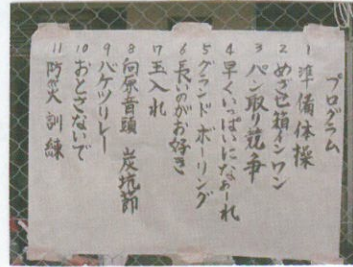 プログラム
1 準備体操
2 めざせ箱インワン
3 パン取り競争
4 早くいっぱいになーれ
5 グランドボーリング
6 長いのがお好き
7 玉入れ
8 向原音頭 炭坑節
9 バケツリレー
10 おとさないで
11 防災訓練